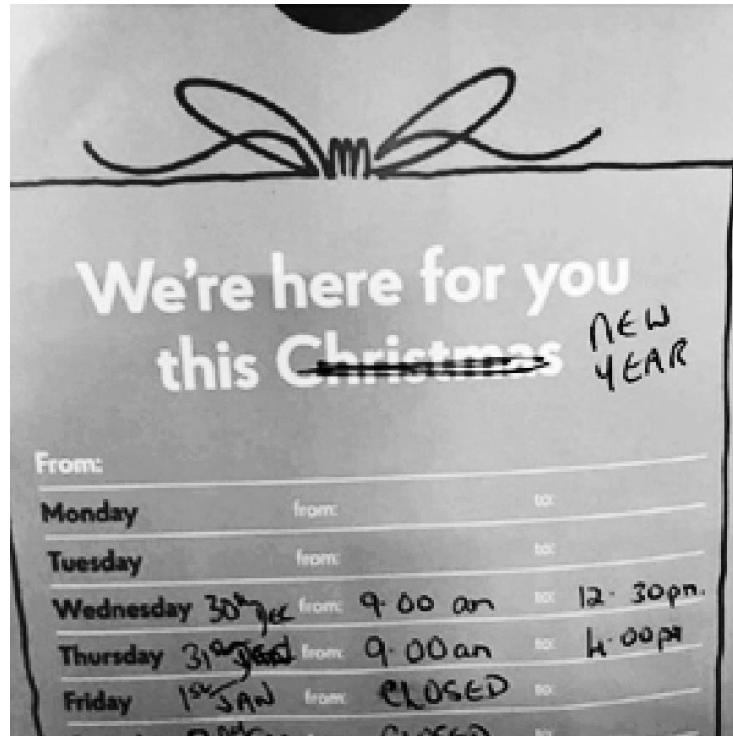 We're here for you
this Christmas NEW YEAR
From:
Monday from: to:
Tuesday from: to:
Wednesday 30th DEC from: 9.00 am to: 12.30pm.
Thursday 31st from: 9.00am to: 4.00pm
Friday 1st JAN from: CLOSED to:
CLOSED to: